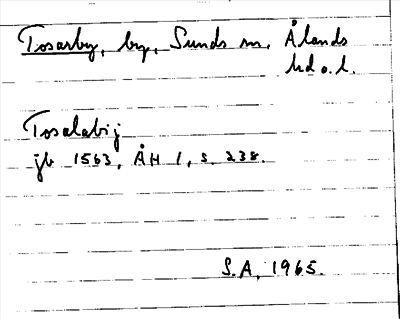 Tosarby, by, Sunds sn, Ålands
hd o. l.
Tosalabij
jb 1563, ÅH 1, s. 238.
S.A, 1965.